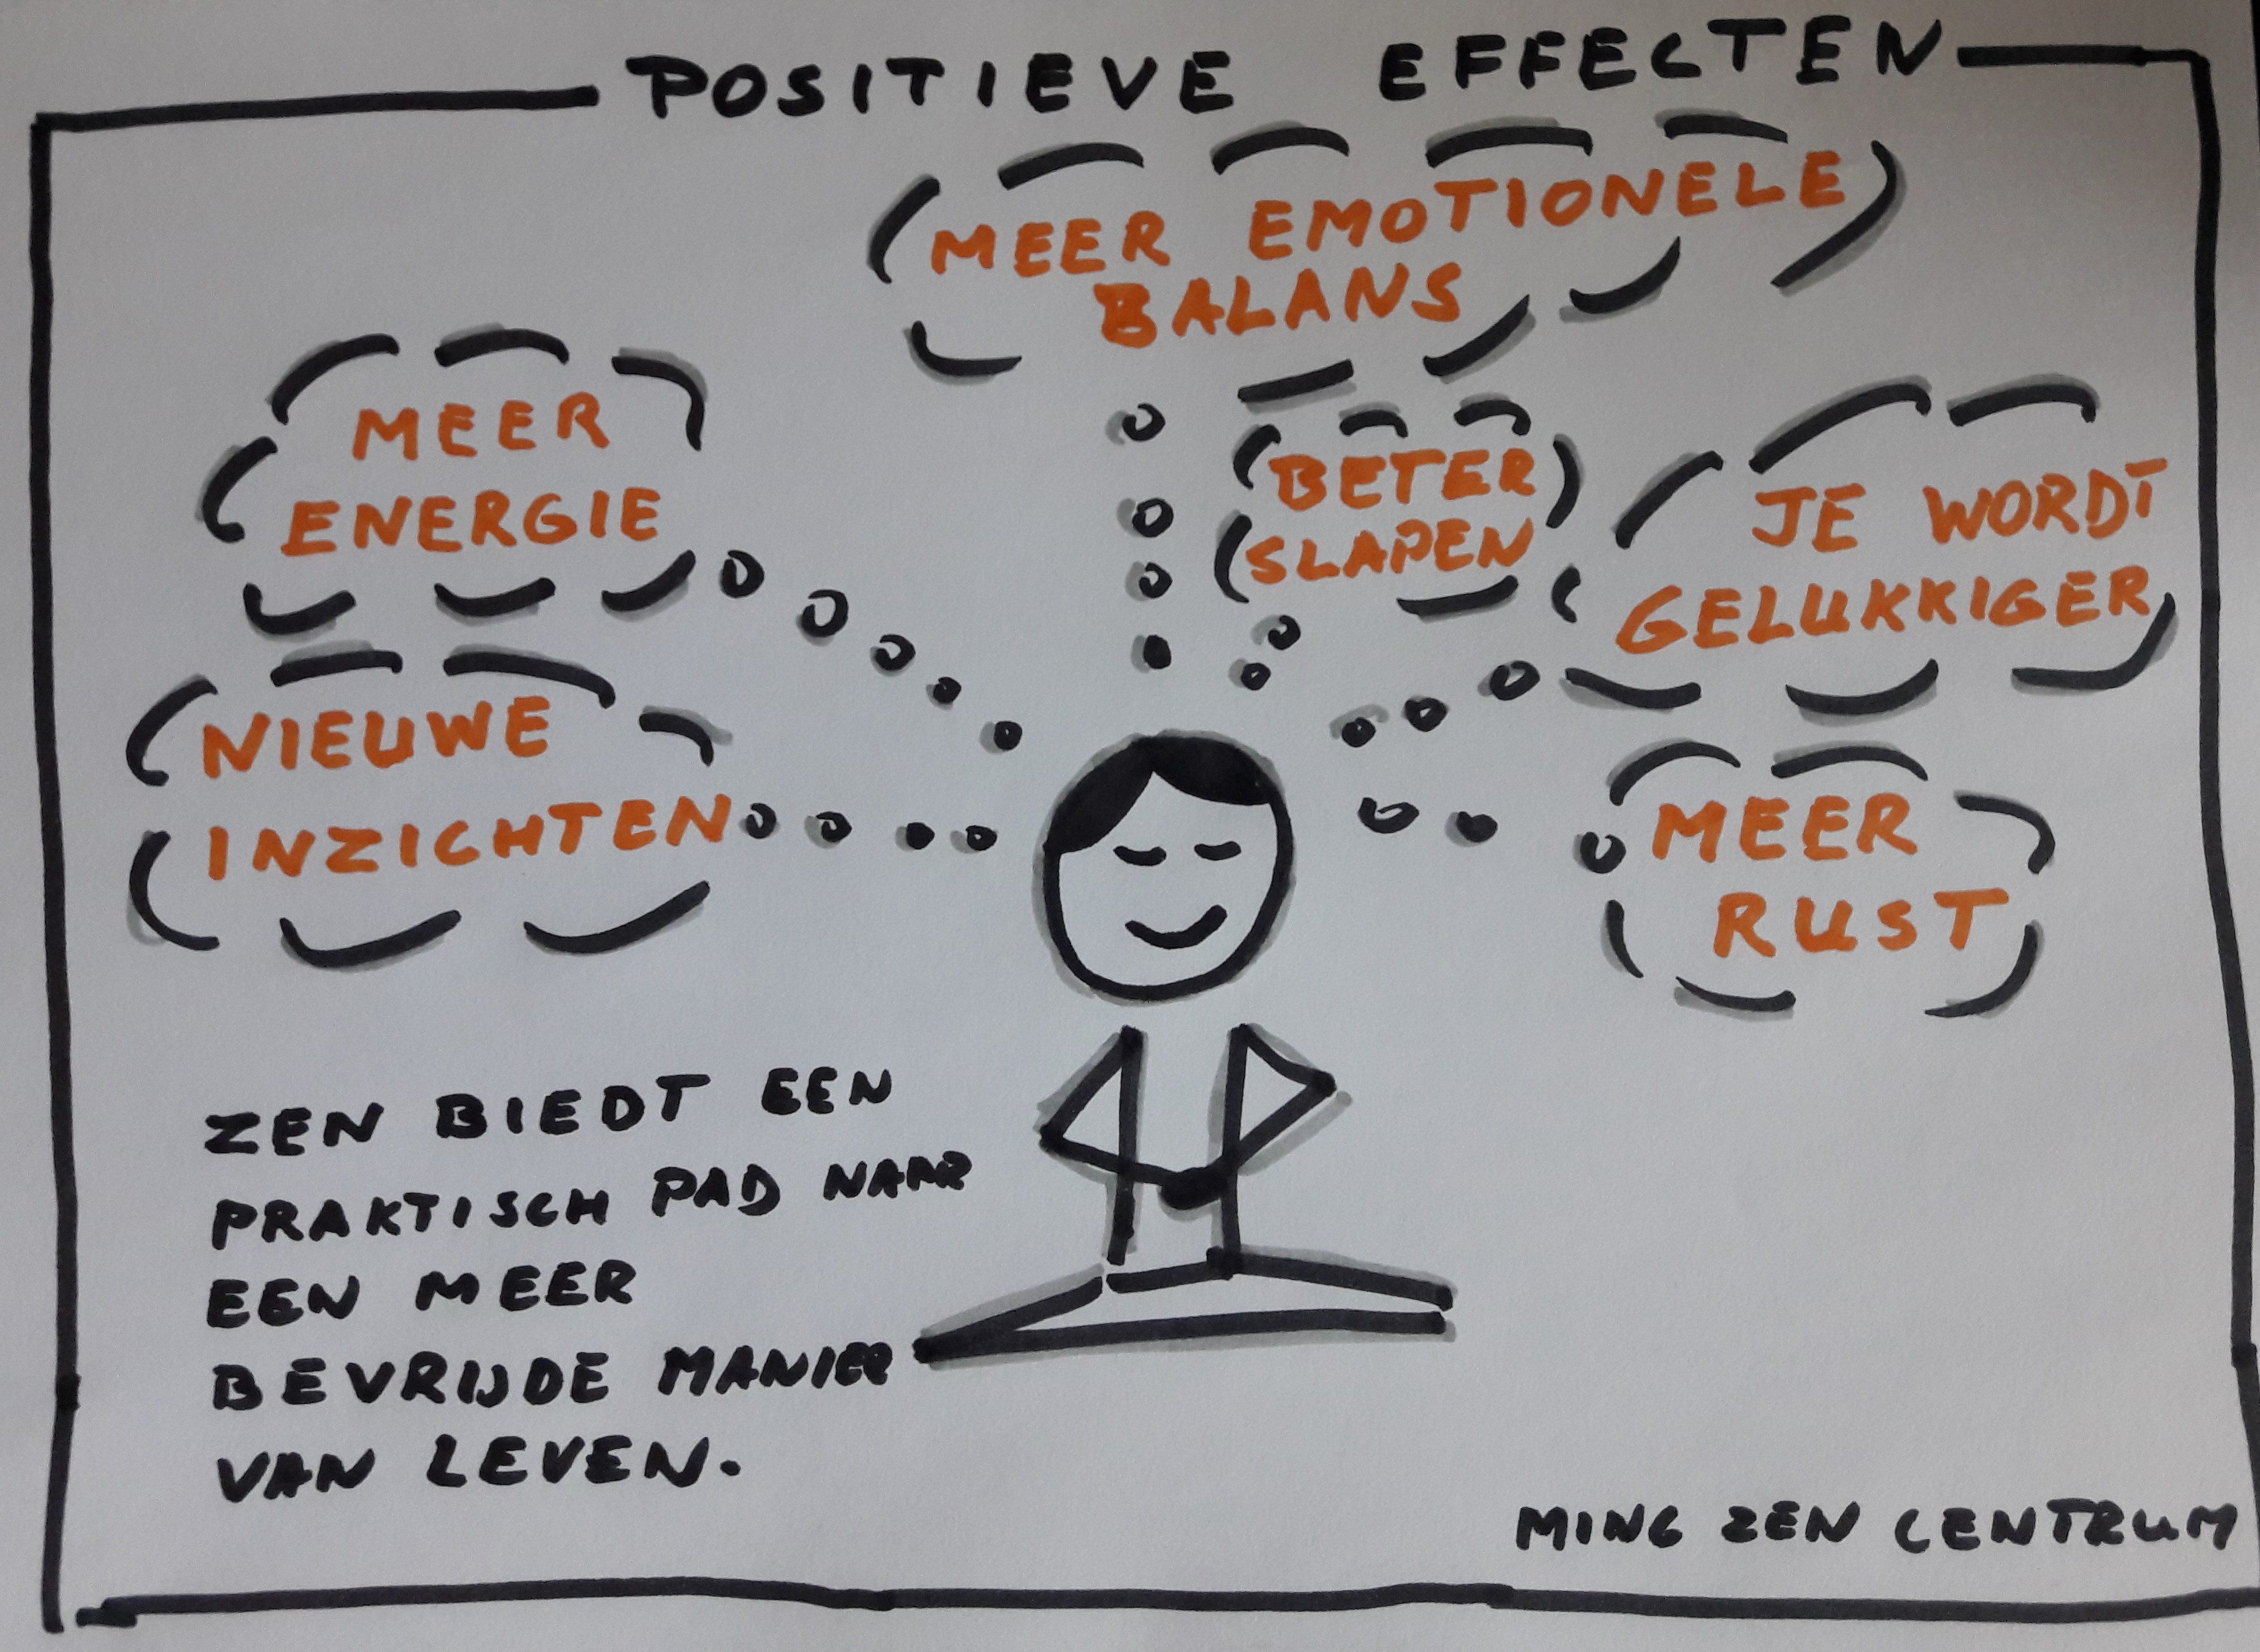 POSITIEVE EFFECTEN
MEER EMOTIONELE
BALANS
MEER
ENERGIE
BETER
SLAPEN
JE WORDT
GELUKKIGER
NIEUWE
INZICHTEN
MEER
RUST
ZEN BIEDT EEN
PRAKTISCH PAD NAAR
EEN MEER
BEVRIJDE MANIER
VAN LEVEN.
MING ZEN CENTRUM